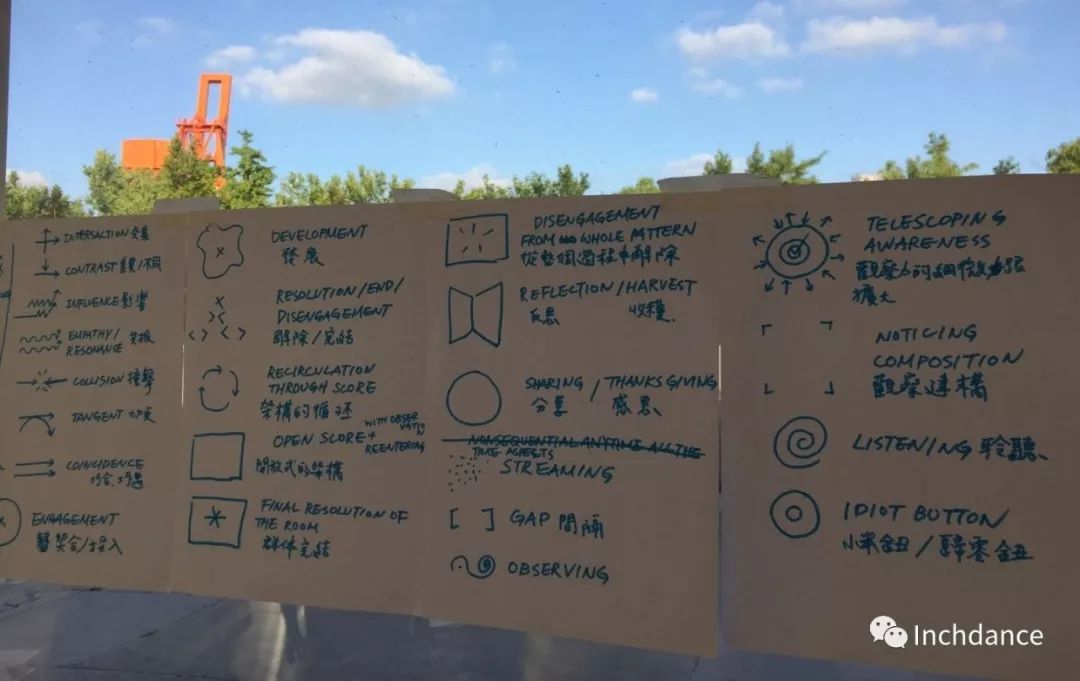 INTERSACTION 交集
CONTRAST 差異/不同
INFLUENCE 影響
EMPATHY/
RESONANCE 共振
COLLISION 撞擊
TANGENT 切
COINCIDENCE
巧合 巧遇
ENGAGEMENT
契合/投入
DEVELOPMENT
發展
RESOLUTION/END/
DISENGAGEMENT
解除/完結
RECIRCULATION
THROUGH SCORE
架構的循环
OPEN SCORE+ WITH OBSERVATION
REENTERING
開放式的架構
FINAL RESOLUTION OF
THE ROOM
群体完結
DISENGAGEMENT
FROM WHOLE PATTERN
從整個過程中解除
REFLECTION/HARVEST
反思 收穫
SHARING / THANKS GIVING
分享 感恩
NONSEQUENTIAL ANYTIME ALL THE
TIME ASPECTS
STREAMING
[ ] GAP 間隔
OBSERVING
TELESCOPING
AWARENESS
觀察力的細微
擴大
NOTICING
COMPOSITION
觀察建構
LISTENING 聆聽
IDIOT BUTTON
小笨鈕/歸零鈕
Inchdance